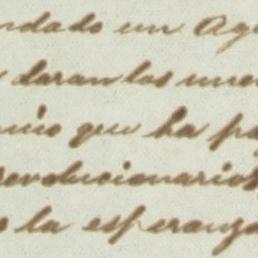 ndado un Ag
daran los nue
ino que ha pa
revolucionarios
la esperanza